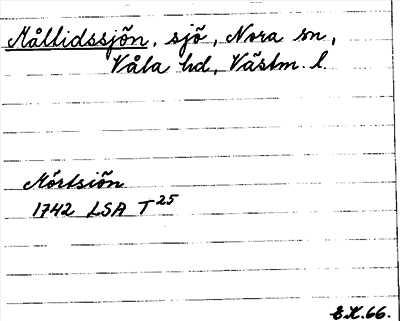 Måltidssjön, sjö, Nora sn,
Våla hd, Västm. l.
Mörtsiön
1742 LSA T25
E.K. 66.